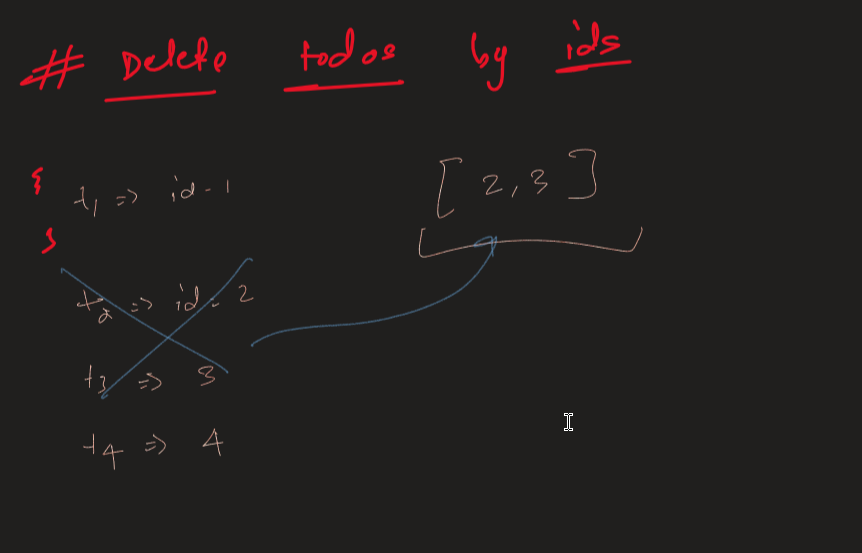 # Delete todos by ids
{
t1 => id - 1
[2,3]
}
t2 => id - 2
t3 => 3
t4 => 4